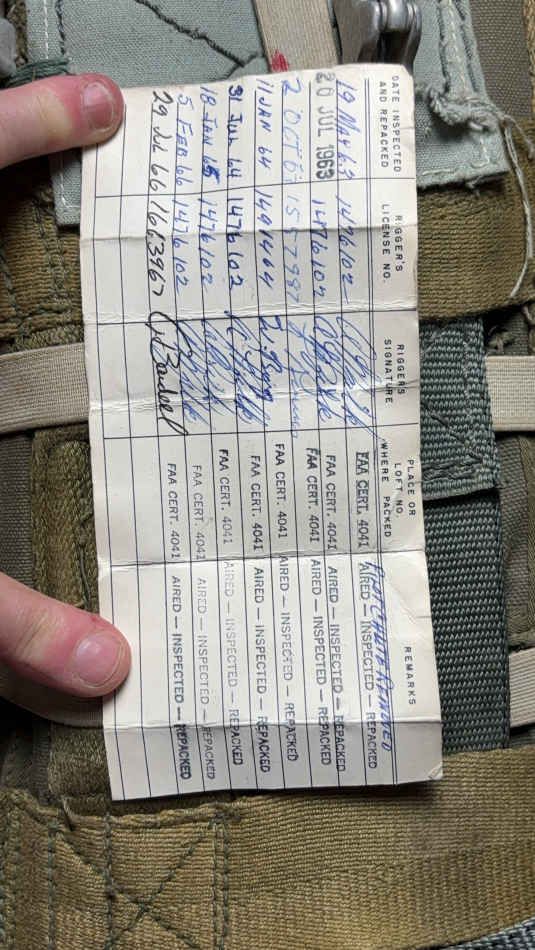 DATE INSPECTED AND REPACKED RIGGER'S LICENSE NO. RIGGERS SIGNATURE PLACE OR LOFT NO. WHERE PACKED REMARKS
PARACHUTE REMOVED
19 MAY 63 1476102 FAA CERT. 4041 AIRED — INSPECTED — REPACKED
20 JUL 1963 1476102 FAA CERT. 4041 AIRED — INSPECTED — REPACKED
2 OCT 63 1597987 FAA CERT. 4041 AIRED — INSPECTED — REPACKED
11 JAN 64 1491464 FAA CERT. 4041 AIRED — INSPECTED — REPACKED
31 JUL 64 1476102 FAA CERT. 4041 AIRED — INSPECTED — REPACKED
18 JAN 65 1476102 FAA CERT. 4041 AIRED — INSPECTED — REPACKED
5 FEB 66 1476102 FAA CERT. 4041 AIRED — INSPECTED — REPACKED
29 JUL 66 1663967 FAA CERT. 4041 AIRED — INSPECTED — REPACKED